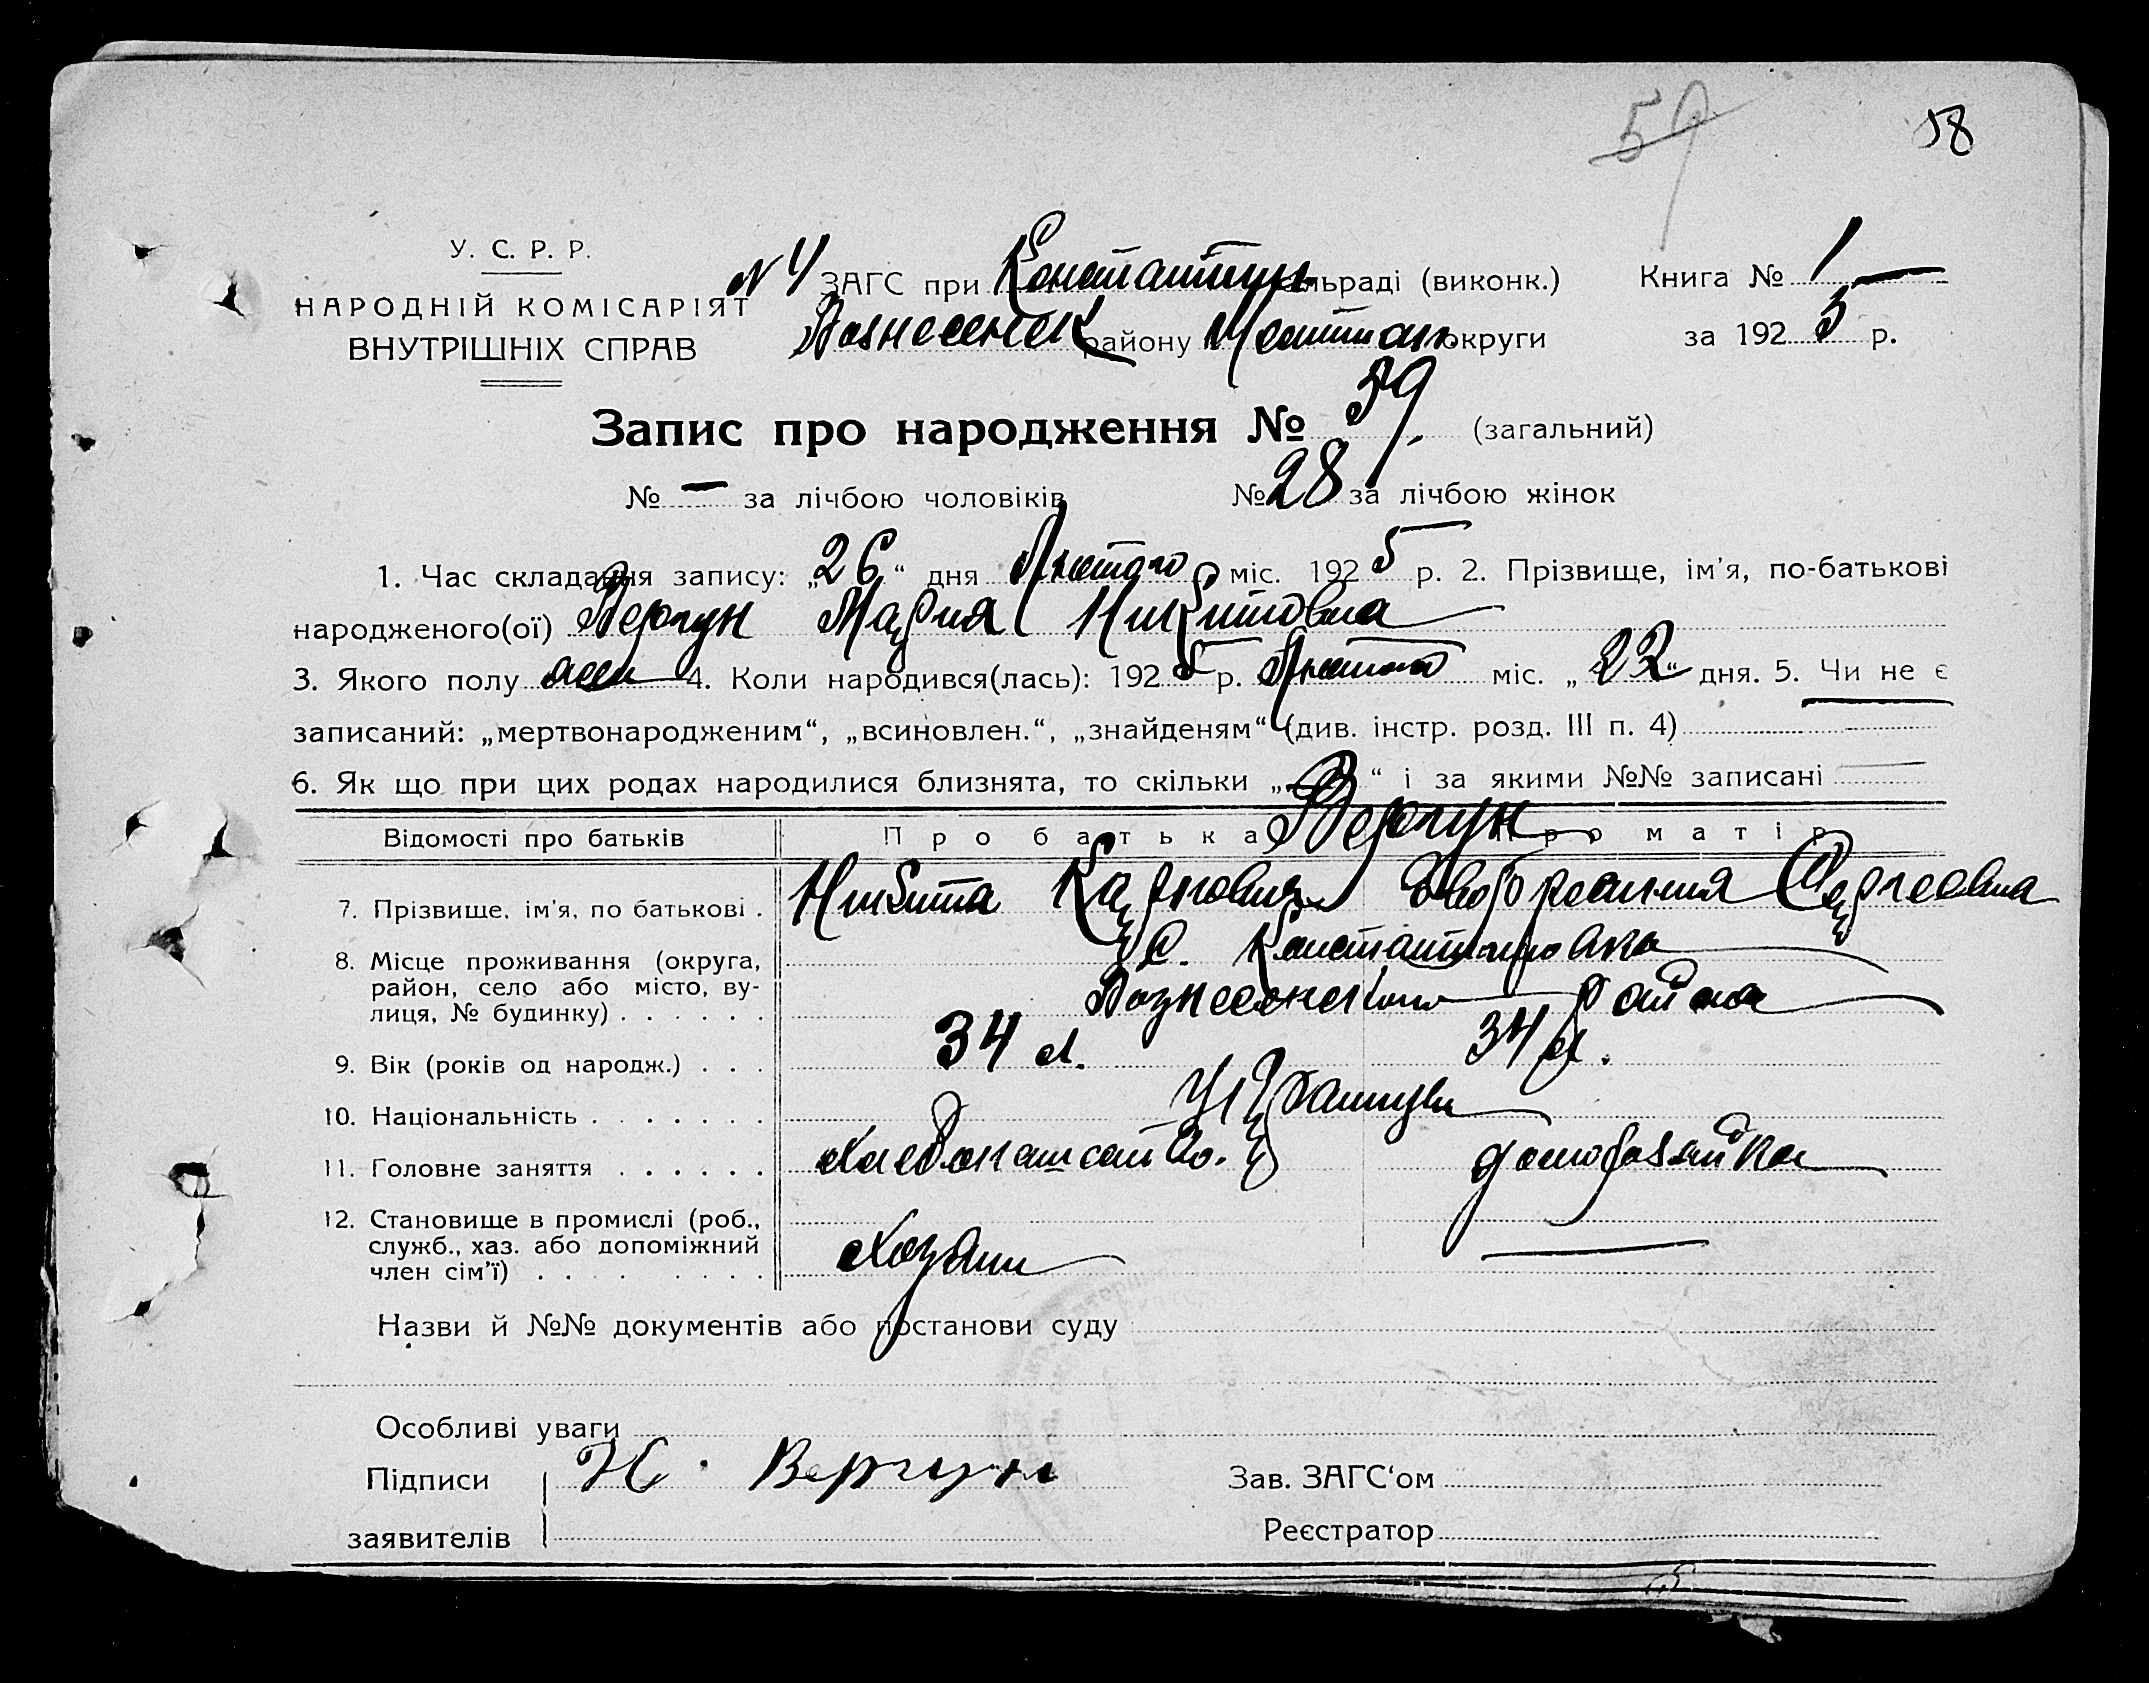 59 58
У. С. Р. Р.
НАРОДНІЙ КОМІСАРІЯТ
ВНУТРІШНІХ СПРАВ
N 4 ЗАГС при Константин сільраді (виконк.) Книга № 1
Вознесенск району округи за 1925 р.
Запис про народження № 59. (загальний)
№ — за лічбою чоловіків № 28 за лічбою жінок
1. Час складання запису: „26“ дня Лютого міс. 1925 р. 2. Прізвище, ім’я, по-батькові
народженого(ої) Вергун Мария Никитовна
3. Якого полу жен 4. Коли народився(лась): 1925 р. Лютого міс. „22“ дня. 5. Чи не є
записаний: „мертвонародженим“, „всиновлен.“, „знайденям“ (див. інстр. розд. III п. 4)
6. Як що при цих родах народилися близнята, то скільки „—“ і за якими №№ записані —
Відомості про батьків Про батька Вергун Про матір
7. Прізвище, ім’я, по батькові . Никита Карпович Евфросиния Сергеевна
8. Місце проживання (округа, район, село або місто, вулиця, № будинку) . . . . . . с. Константиновка
Вознесенского района
9. Вік (років од народж.) . . . 34 л. 34 л.
10. Національність . . . . . . . Украинцы
11. Головне заняття . . . . . . хлебопашество. домохозяйка
12. Становище в промислі (роб., служб., хаз. або допоміжний член сім’ї) . . . . . . . Хозяин —
Назви й №№ документів або постанови суду
Особливі уваги
Підписи Н. Вергун Зав. ЗАГС‘ом
заявителів Реєстратор